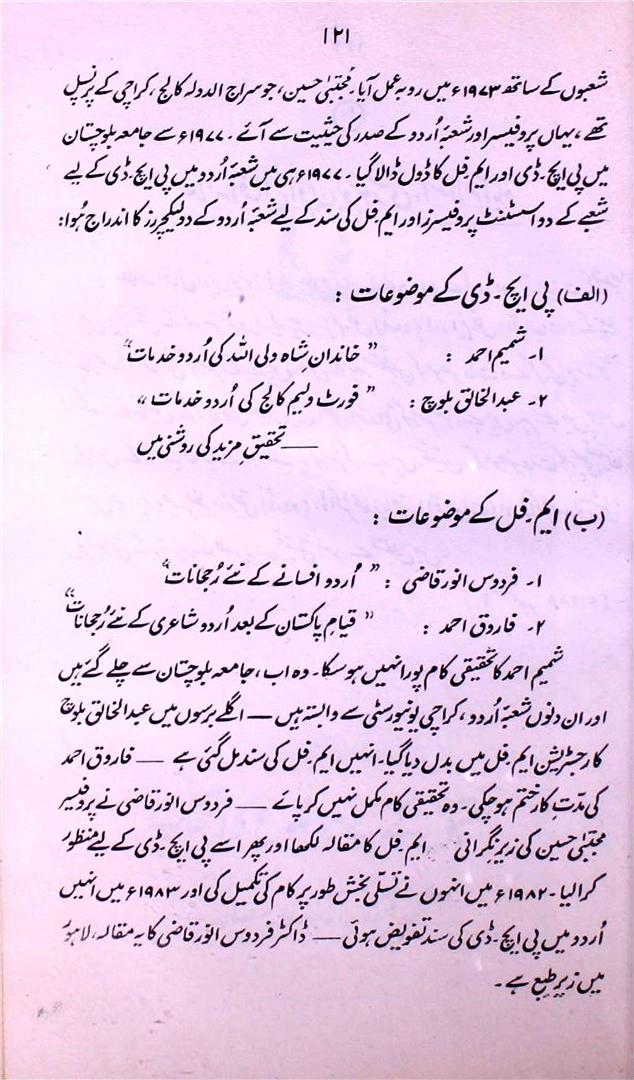 ۱۲۱
شعبوں کے ساتھ ۱۹۷۳ء میں روبہ عمل آیا۔ مجتبیٰ حسین، جو سراج الدولہ کالج، کراچی کے پرنسپل
تھے، یہاں پروفیسر اور شعبۂ اُردو کے صدر کی حیثیت سے آئے۔ ۱۹۷۷ء سے جامعہ بلوچستان
میں پی ایچ۔ڈی اور ایم۔فل کا ڈول ڈالا گیا۔ ۱۹۷۷ء ہی میں شعبۂ اُردو میں پی ایچ۔ڈی کے لیے
شعبے کے دو اسسٹنٹ پروفیسرز اور ایم۔فل کی سند کے لیے شعبۂ اُردو کے دو لیکچررز کا اندراج ہُوا:
(الف) پی ایچ۔ڈی کے موضوعات :
۱۔ شمیم احمد : ”خاندانِ شاہ ولی اللہ کی اُردو خدمات“
۲۔ عبدالخالق بلوچ : ”فورٹ ولیم کالج کی اُردو خدمات“
—— تحقیقِ مزید کی روشنی میں
(ب) ایم۔فل کے موضوعات :
۱۔ فردوس انور قاضی : ”اُردو افسانے کے نئے رُجحانات“
۲۔ فاروق احمد : ”قیامِ پاکستان کے بعد اُردو شاعری کے نئے رُجحانات“
شمیم احمد کا تحقیقی کام پورا نہیں ہو سکا۔ وہ اب، جامعہ بلوچستان سے چلے گئے ہیں
اور ان دنوں شعبۂ اُردو، کراچی یونیورسٹی سے وابستہ ہیں —— اگلے برسوں میں عبدالخالق بلوچ
کا رجسٹریشن ایم۔فل میں بدل دیا گیا۔ انہیں ایم۔فل کی سند مل گئی ہے —— فاروق احمد
کی مدتِ کار ختم ہو چکی۔ وہ تحقیقی کام مکمل نہیں کر پائے —— فردوس انور قاضی نے پروفیسر
مجتبیٰ حسین کی زیرِ نگرانی ایم۔فل کا مقالہ لکھا اور پھر اسے پی ایچ۔ڈی کے لیے منظور
کرا لیا۔ ۱۹۸۲ء میں انہوں نے تسلی بخش طور پر کام کی تکمیل کی اور ۱۹۸۳ء میں انہیں
اُردو میں پی ایچ۔ڈی کی سند تفویض ہوئی —— ڈاکٹر فردوس انور قاضی کا یہ مقالہ، لاہور
میں زیرِ طبع ہے۔